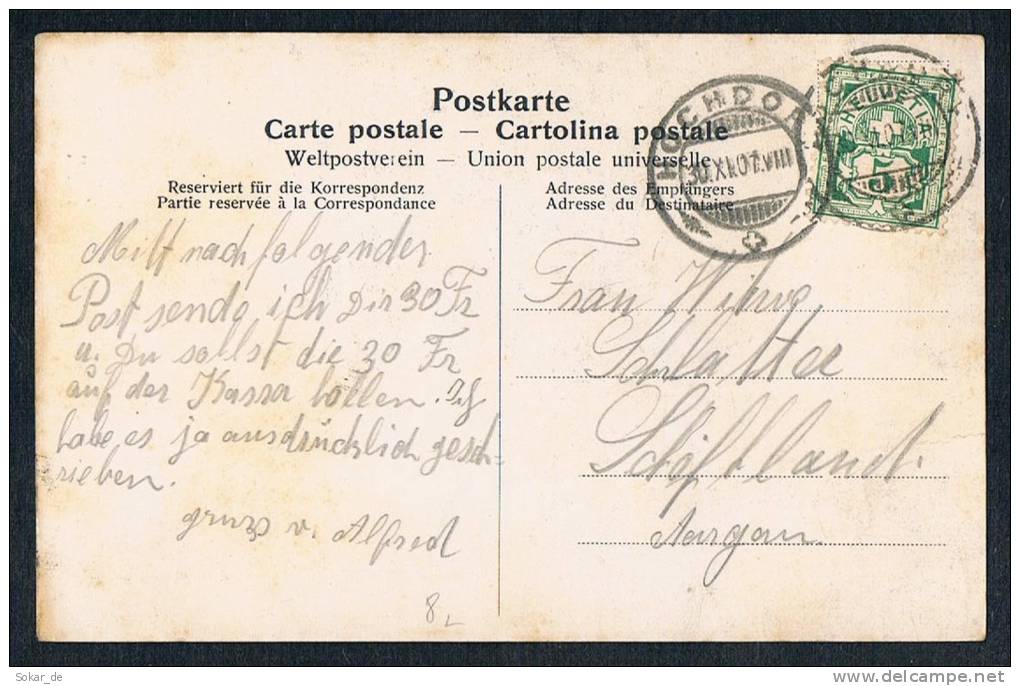 Postkarte
Carte postale – Cartolina postale
Weltpostverein – Union postale universelle
Reserviert für die Korrespondenz
Partie reservée à la Correspondance
Adresse des Empfängers
Adresse du Destinataire
HOCHDORF
30.X.07.VIII
HELVETIA
Mitt nachfolgender
Post sende ich Dir 30 Fr
u. Du sollst die 30 Fr
auf der Kassa
habe es ja ausdrücklich gesch-
rieben.
gruss v. Alfred
8
Frau Witwe
Schlatter
Schöftland
Aargau.
Sokar_de
www.delcampe.net